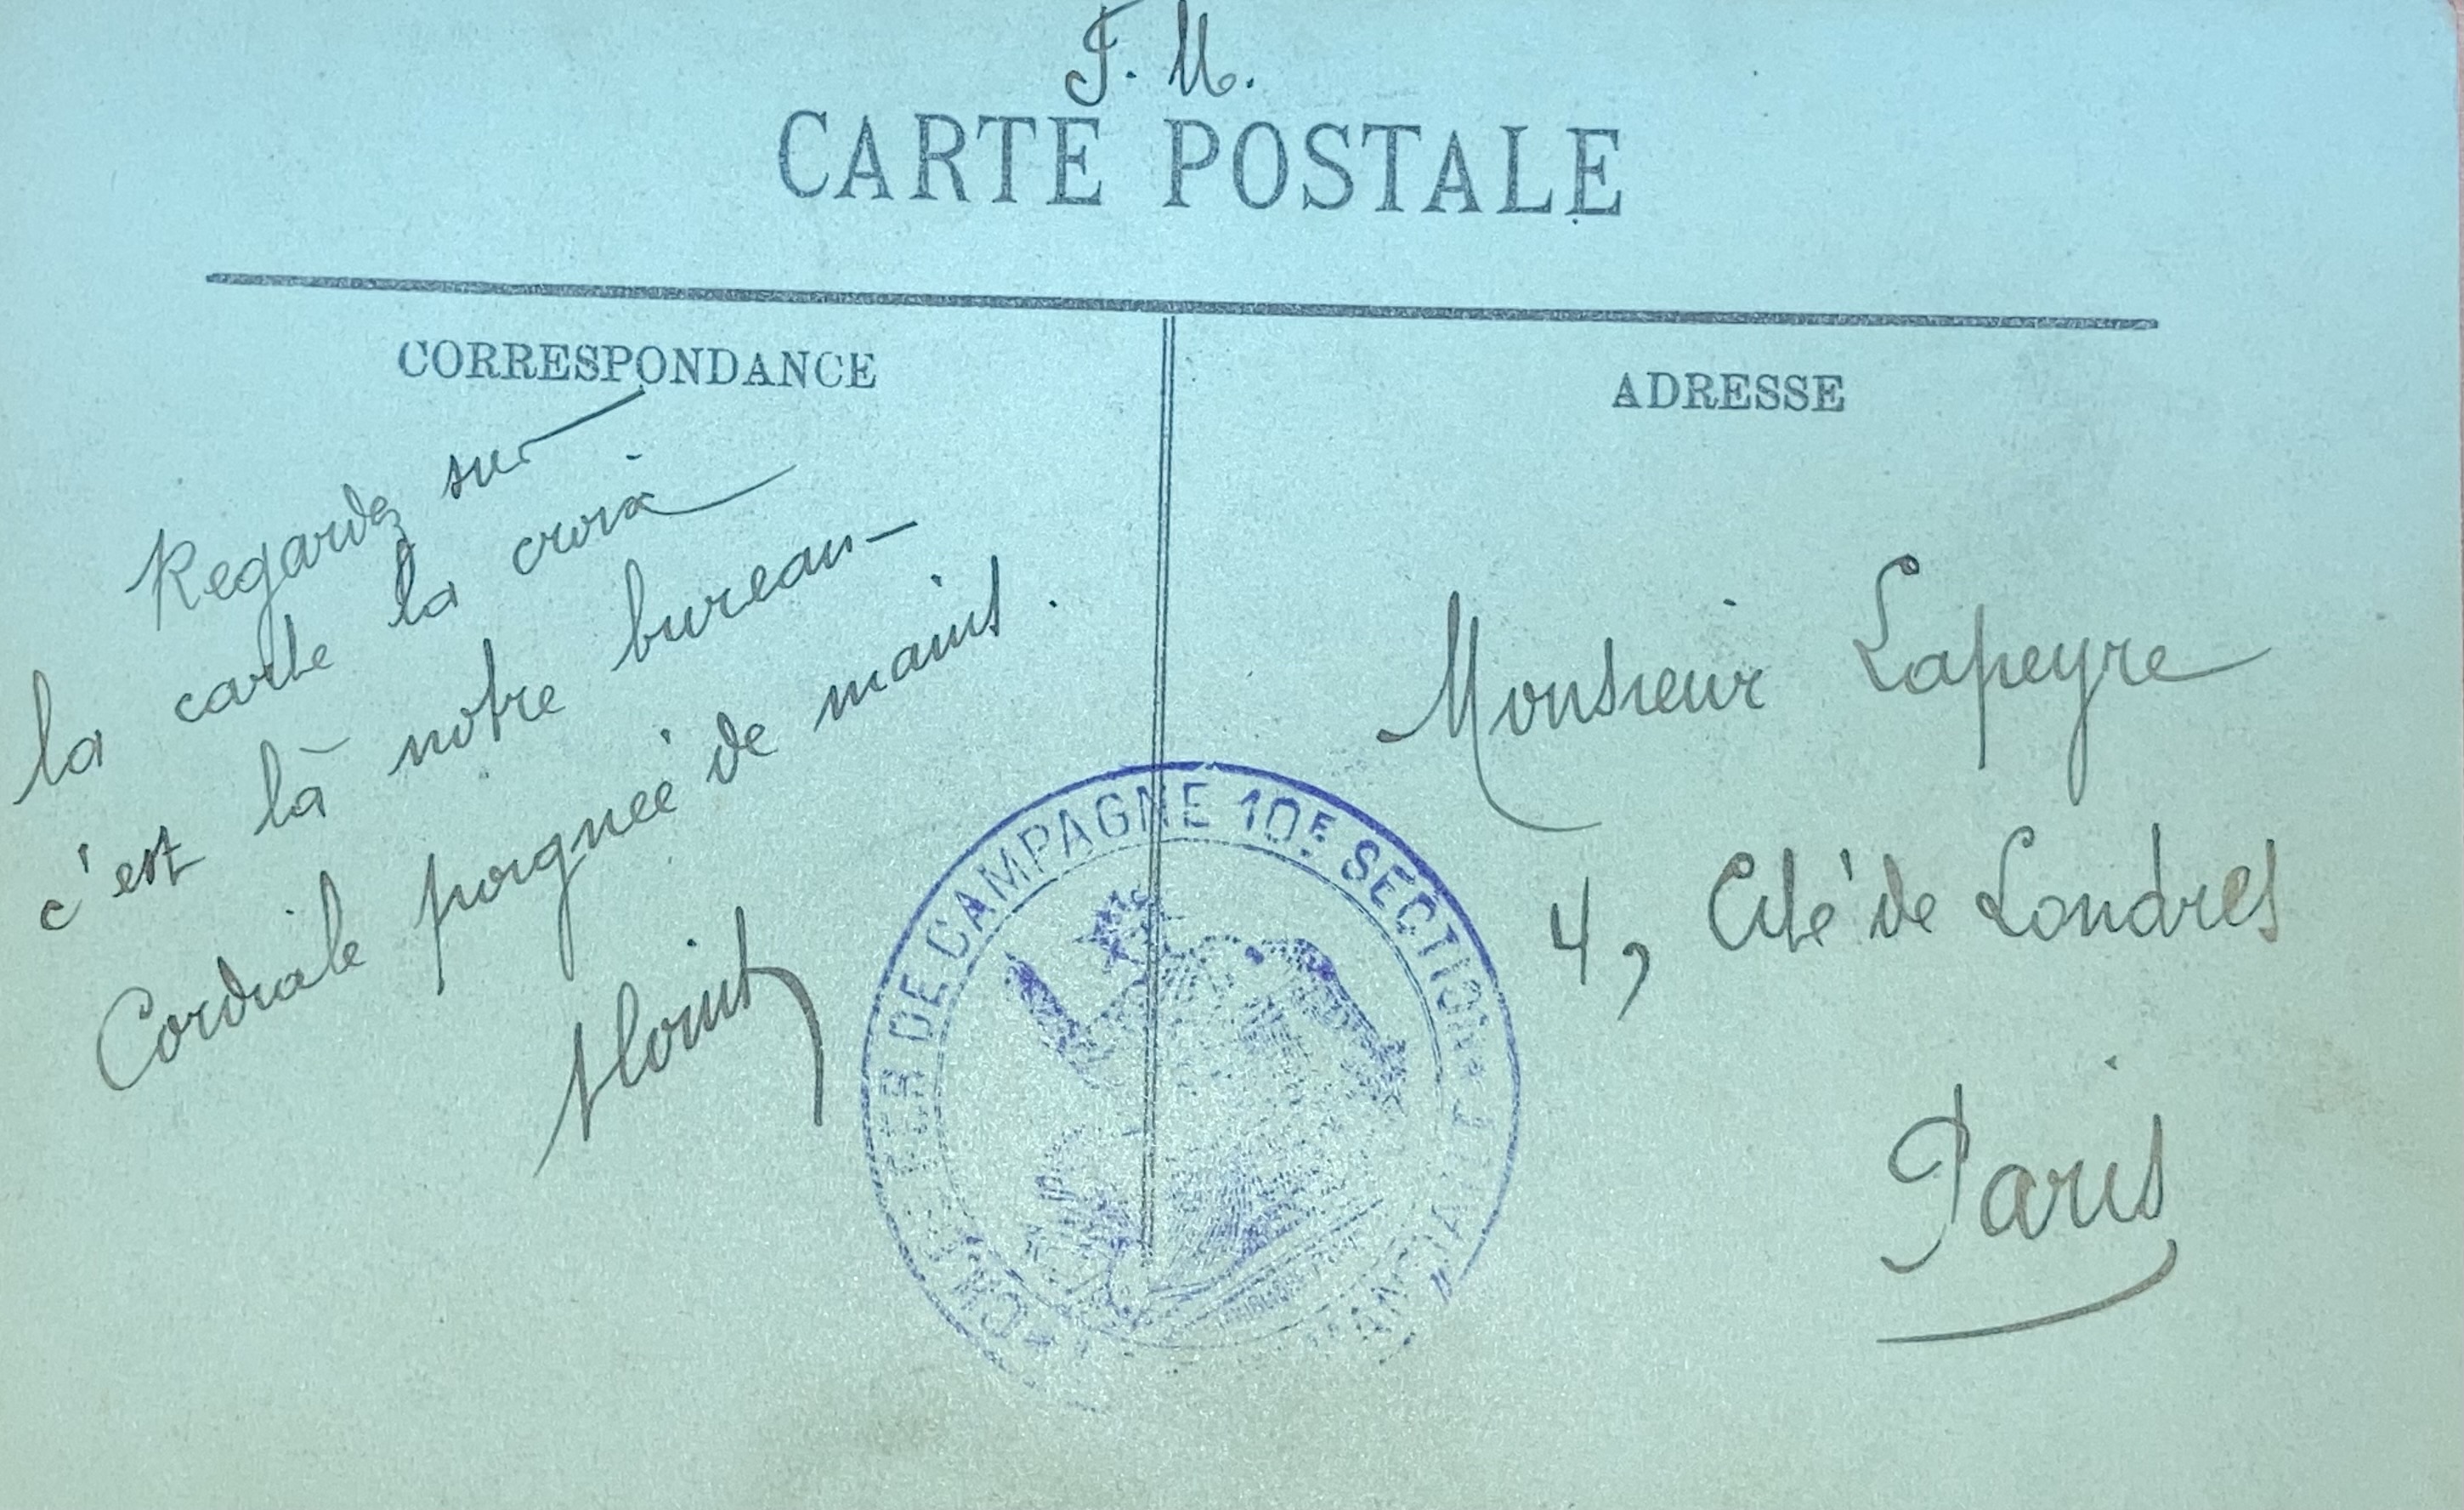 F. M.
CARTE POSTALE
CORRESPONDANCE
Regardez sur
la carte la croix
c'est là notre bureau-
Cordiale poignée de mains.
ADRESSE
Monsieur Lapeyre
4, Cité de Londres
Paris
DE FER DE CAMPAGNE 10E SECTION